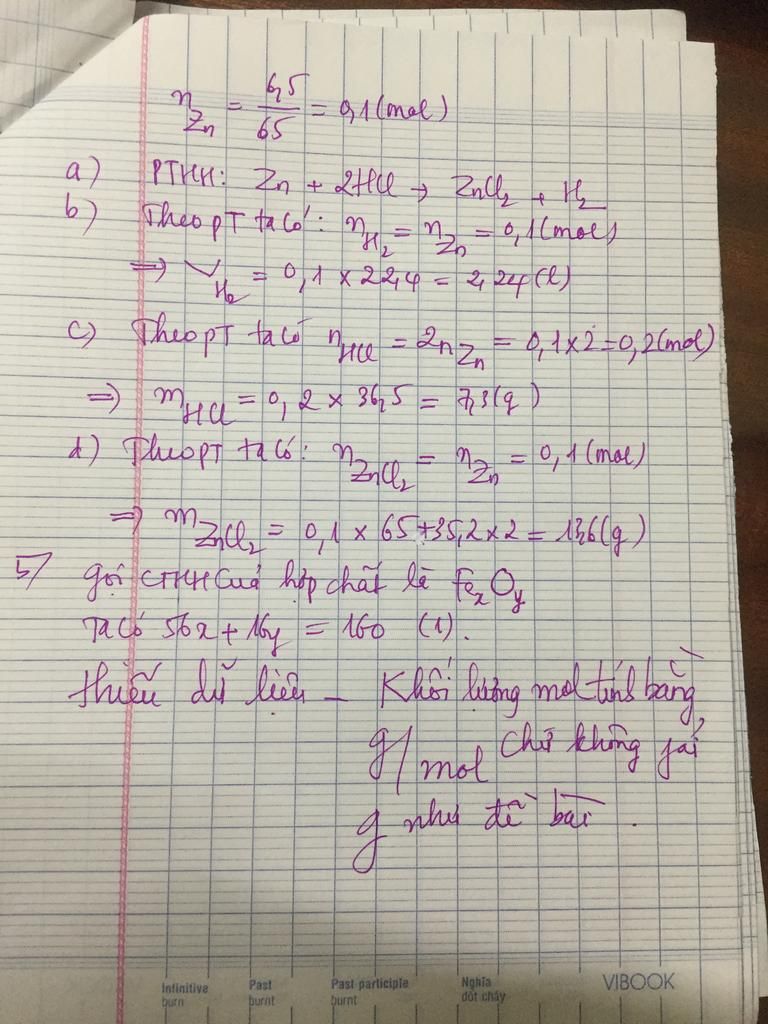 n Zn = 6,5/65 = 0,1 (mol)
a) PTHH: Zn + 2HCl → ZnCl2 + H2
b) Theo pT ta có: nH2 = nZn = 0,1 (mol)
=> VH2 = 0,1 × 22,4 = 2,24 (l)
c) Theo pT ta có nHCl = 2nZn = 0,1 × 2 = 0,2 (mol)
=> mHCl = 0,2 × 36,5 = 7,3 (g)
d) Theo pT ta có: nZnCl2 = nZn = 0,1 (mol)
=> mZnCl2 = 0,1 × 65 + 35,2 × 2 = 13,6 (g)
5/ gọi CTHH của hợp chất là FexOy
Ta có 56x + 16y = 160 (1).
thiếu dữ liệu - Khối lượng mol tính bằng
g/mol chứ không fải
g như đề bài.
Infinitive Past Past participle Nghĩa VIBOOK
burn burnt burnt đốt cháy